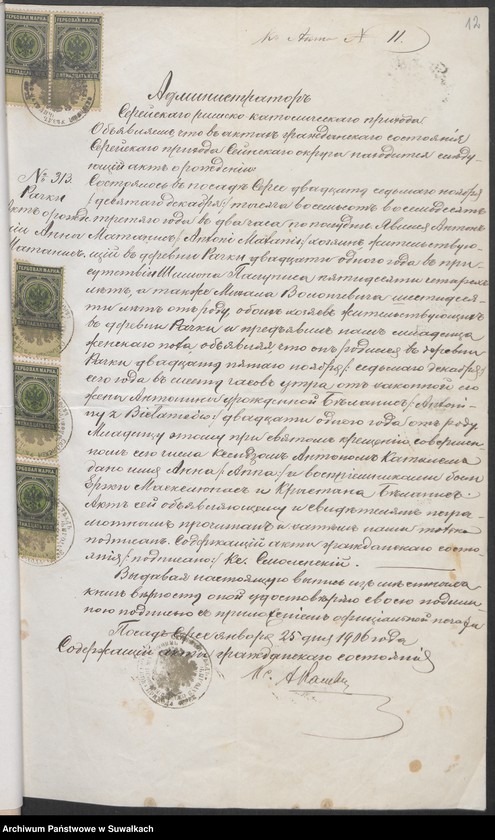 12
къ Акту № 11.
ГЕРБОВАЯ МАРКА
ГЕРБОВАЯ МАРКА
Администраторъ
Серейскаго римско-католическаго прихода
Объявляетъ, что въ актахъ гражданскаго состоянія
Серейскаго прихода Сейнскаго округа находится слѣду-
ющій актъ о рожденіи
№ 313.
Рачки
Состоялось въ посадѣ Серее двадцать седьмаго ноября
/девятаго декабря/ тысяча восемьсотъ восемьдесятъ
третьяго года въ два часа по полудни. Явился Антонъ
Матанисъ /Antoni Matanis/ хозяинъ жительствую-
щій въ деревни Рачки двадцати одного года въ при-
сутствіи пятидесяти четырехъ
лѣтъ, а также шестидеся-
ти лѣтъ отъ роду, обоихъ хозяевъ жительствующихъ
въ деревни Рачки и предъявилъ намъ младенца
женскаго пола, объявляя, что онъ родился въ деревни
Рачки двадцать пятаго ноября /седьмаго декабря/
сего года въ часовъ утра отъ законной его
жены Антонины урожденной /Antoni-
ny z / двадцати одного года отъ роду.
Младенцу этому при святомъ крещеніи совершен-
номъ сего числа Ксендзомъ Антономъ
дано имя Анна /Anna/ и воспріемниками были
и
Актъ сей объявляющему и свидѣтелямъ негра-
мотнымъ прочитанъ и нами только
подписанъ. Содержащій акты гражданскаго состо-
янія /подписано/ Кс. Смоленскій.
Выдавая настоящую выпись изъ
книгъ вѣрность оной удостовѣряю своею подпи-
сью съ приложеніемъ печати
Посадъ Серее января 25 дня 1906 года
Содержащій акты гражданскаго состоянія
Кс.
ГЕРБОВАЯ МАРКА
ГЕРБОВАЯ МАРКА
ГЕРБОВАЯ МАРКА
Archiwum Państwowe w Suwałkach